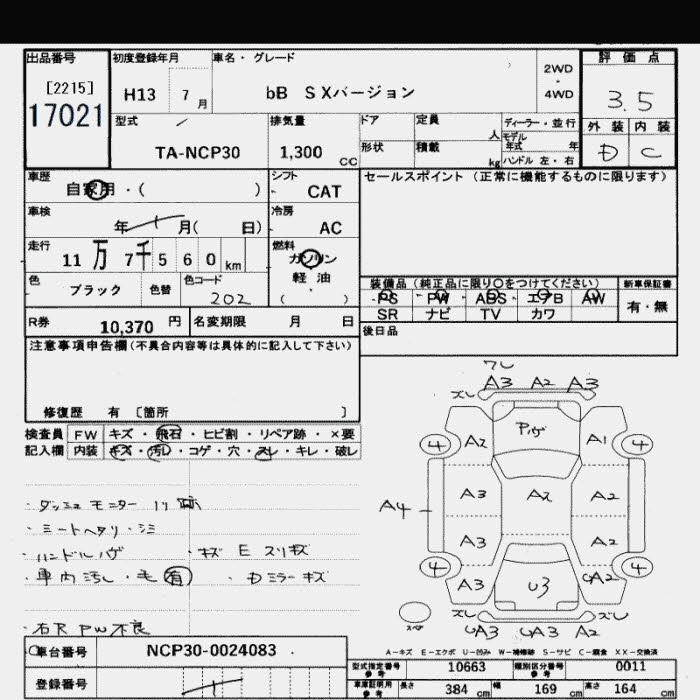 出品番号 初度登録年月 車名・グレード 2WD・4WD 評価点
[2215]
17021
H13 7月 bB SXバージョン 3.5
型式 排気量 ドア 定員 人 ディーラー・並行
モデル年式 年
外装 内装
TA-NCP30 1,300 CC 形状 積載 kg ハンドル 左・右 D C
車歴 シフト セールスポイント (正常に機能するものに限ります)
自家用・( ) CAT
車検 冷房
年 月( 日) AC
走行 燃料
11万 7千560km ガソリン
軽油
( )
色 色替 色コード 装備品 (純正品に限り○をつけてください) 新車保証書
ブラック 202 PS PW ABS エアB AW 有・無
SR ナビ TV カワ
R券 10,370円 名変期限 月 日 後日品
注意事項申告欄(不具合内容等は具体的に記入して下さい)
修復歴 有 [箇所 ]
検査員 FW キズ・飛石・ヒビ割・リペア跡・×要
記入欄 内装 キズ・汚レ・コゲ・穴・スレ・キレ・破レ
・ダッシュ モニター トリ跡
・シートヘタリ・シミ
・ハンドルハゲ ・キズ E スリキズ
・車内汚し・毛有 ・Dミラーキズ
・右R PW不良
ワレ
A3 A2 A3
ズレ
A2 A1
4 4
A3 A2 A2
A4
A3 A2
4 4
A3 U3 UA2
ズレ ズレ
UA3 UA3 A2
スペア
A-キズ E-エクボ U-凹み W-補修跡 S-サビ C-腐食 XX-交換済
車台番号 NCP30-0024083
型式指定番号参考 10663 類別区分番号参考 0011
登録番号
車庫証明用参考 長さ 384cm 幅 169cm 高さ 164cm